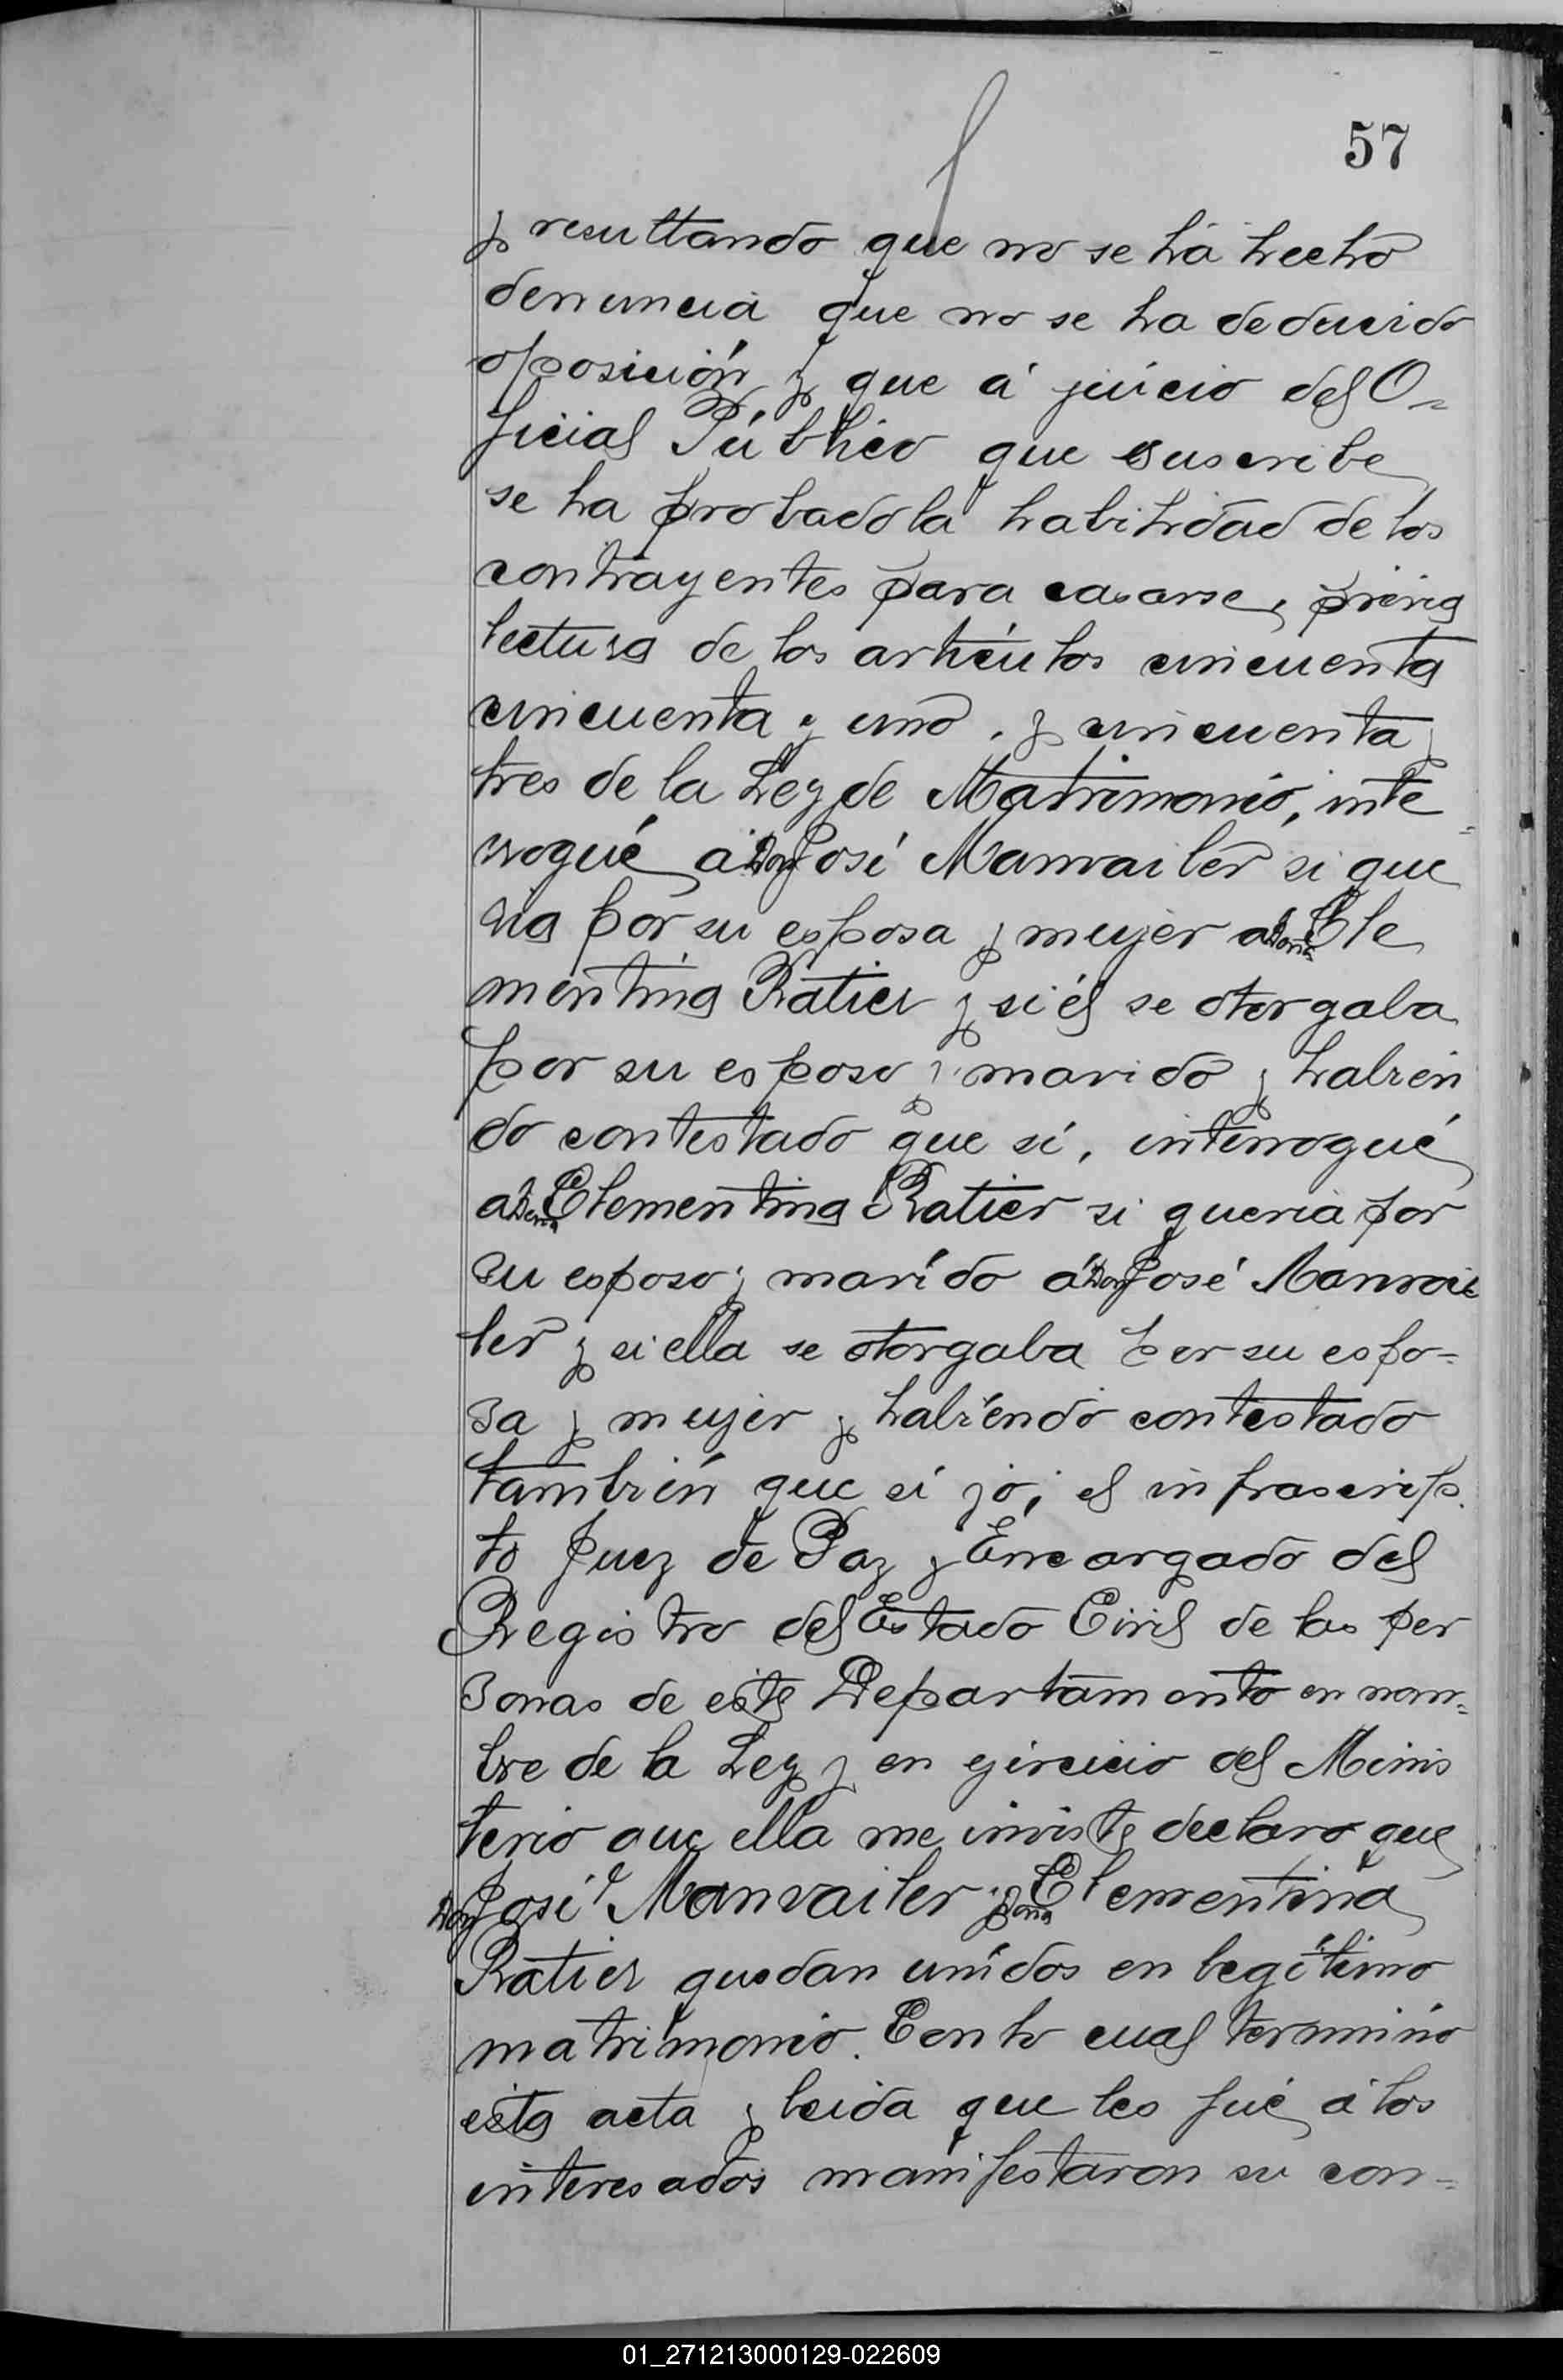 57
y resultando que no se há hecho
denuncia que no se ha deducido
oposición y que á juicio del O=
ficial Público que suscribe
se ha probado la habilidad de los
contrayentes para casarse, prévia
lectura de los artículos cincuenta
cincuenta y uno, y cincuenta y
tres de la Ley de Matrimonio, inte=
rrogué á Don José Manvailer si que
ria por su esposa y mujer a Doña Cle
mentina Ratier y si él se otorgaba
por su esposo y marido y habien
do contestado que sí, interrogué
a Doña Clementina Ratier si queria por
su esposo y marido á Don José Manvai
ler y si ella se otorgaba por su espo=
sa y mujer y habiendo contestado
también que sí yo, el infrascrip
to Juez de Paz y Encargado del
Registro del Estado Civil de las per
sonas de este Departamento en nom=
bre de la Ley y en ejercicio del Minis
terio que ella me inviste declaro que
Don José Manvailer y Doña Clementina
Ratier quedan unidos en legítimo
matrimonio. Con lo cual terminó
esta acta y leida que les fué á los
interesados manifestaron su con=
01_271213000129-022609